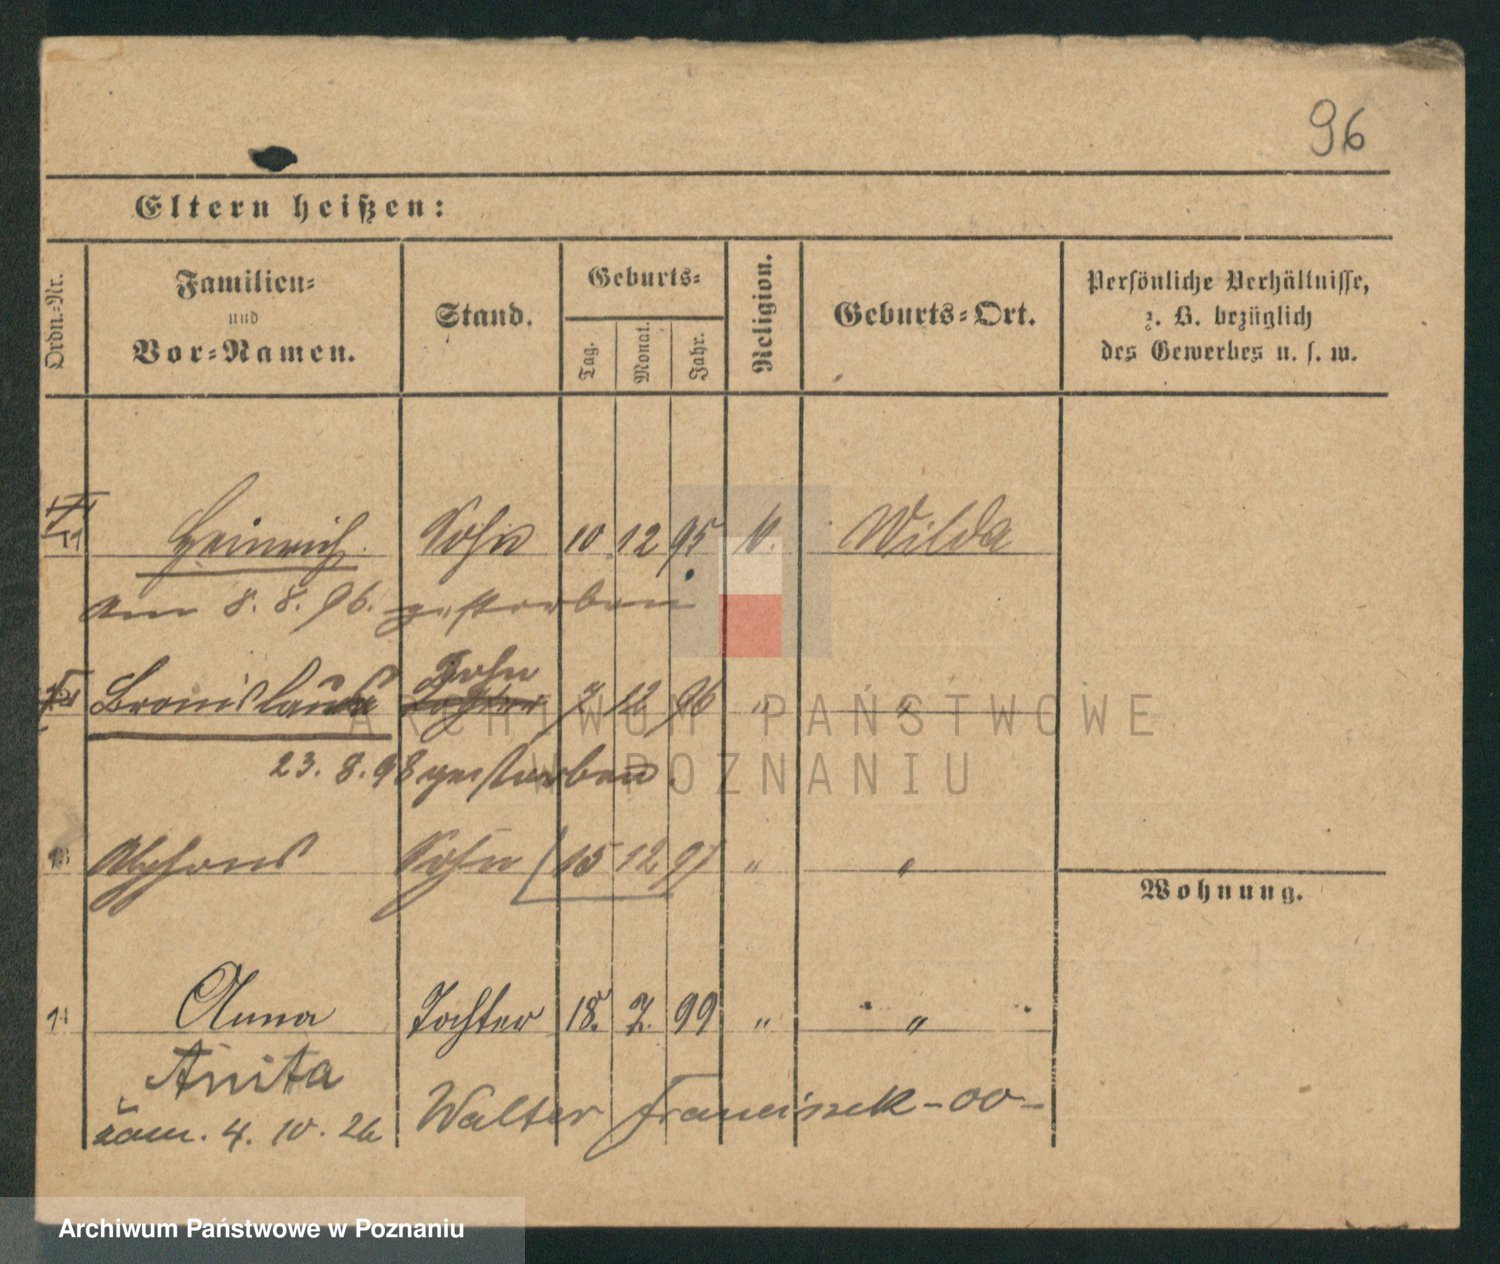 96
Eltern heißen:
Ordn.-Nr.
Familien-
und
Vor-Namen.
Stand.
Geburts-
Tag.
Monat.
Jahr.
Religion.
Geburts-Ort.
Persönliche Verhältnisse,
z. B. bezüglich
des Gewerbes u. s. w.
11 Heinrich Sohn 10 12 95 Wilda
am 8. 8. 96. gestorben
Sohn
Bronislaus Tochter 7 12 96 " "
23. 8. 98 gestorben.
13 Alphons Sohn 15 12 97 " "
Wohnung.
14 Anna Tochter 18. 7. 99 " "
Anita
zam. 4. 10. 26 Walter Franciszek -oo-
ARCHIWUM PAŃSTWOWE
W POZNANIU
Archiwum Państwowe w Poznaniu